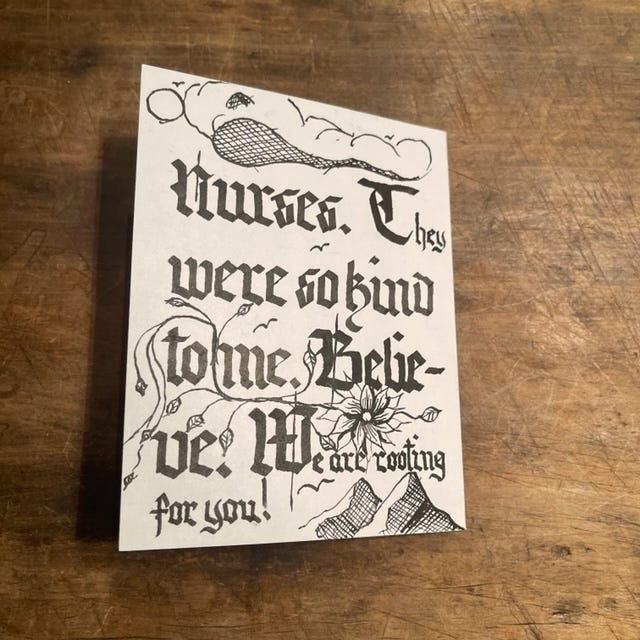 Nurses. They
were so kind
to me. Belie-
ve! We are rooting
for you!